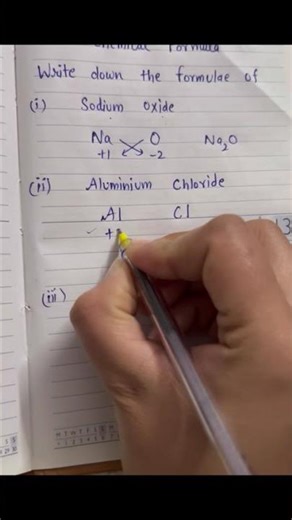 Chemical Formula
Write down the formulae of
(i) Sodium Oxide
Na O Na₂O
+1 -2
(ii) Aluminium Chloride
Al Cl
(iii)